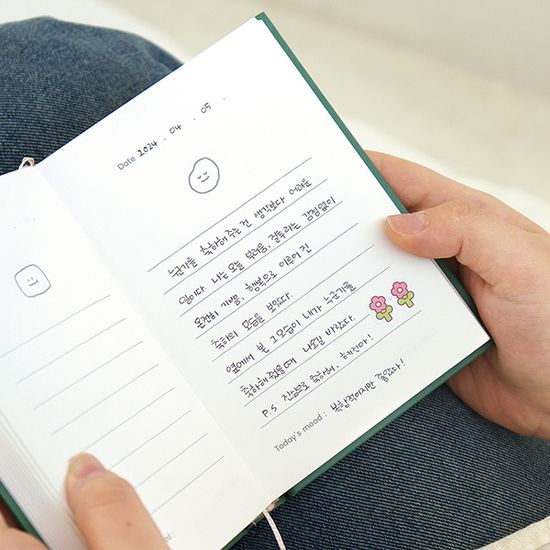 Date 2024 . 04 . 05 .
누군가를 축하해 주는 건 생각보다 어려운
일이다. 나는 오늘 부러움, 질투라는 감정없이
온전히 기쁨, 행복으로 이루어진
축하의 모습을 보았다.
옆에서 본 그 모습이 내가 누군가를
축하해줬을때 나오길 바랐다.
P.S 진심으로 축하해,
Today's mood : 복합적이지만 즐겁다!